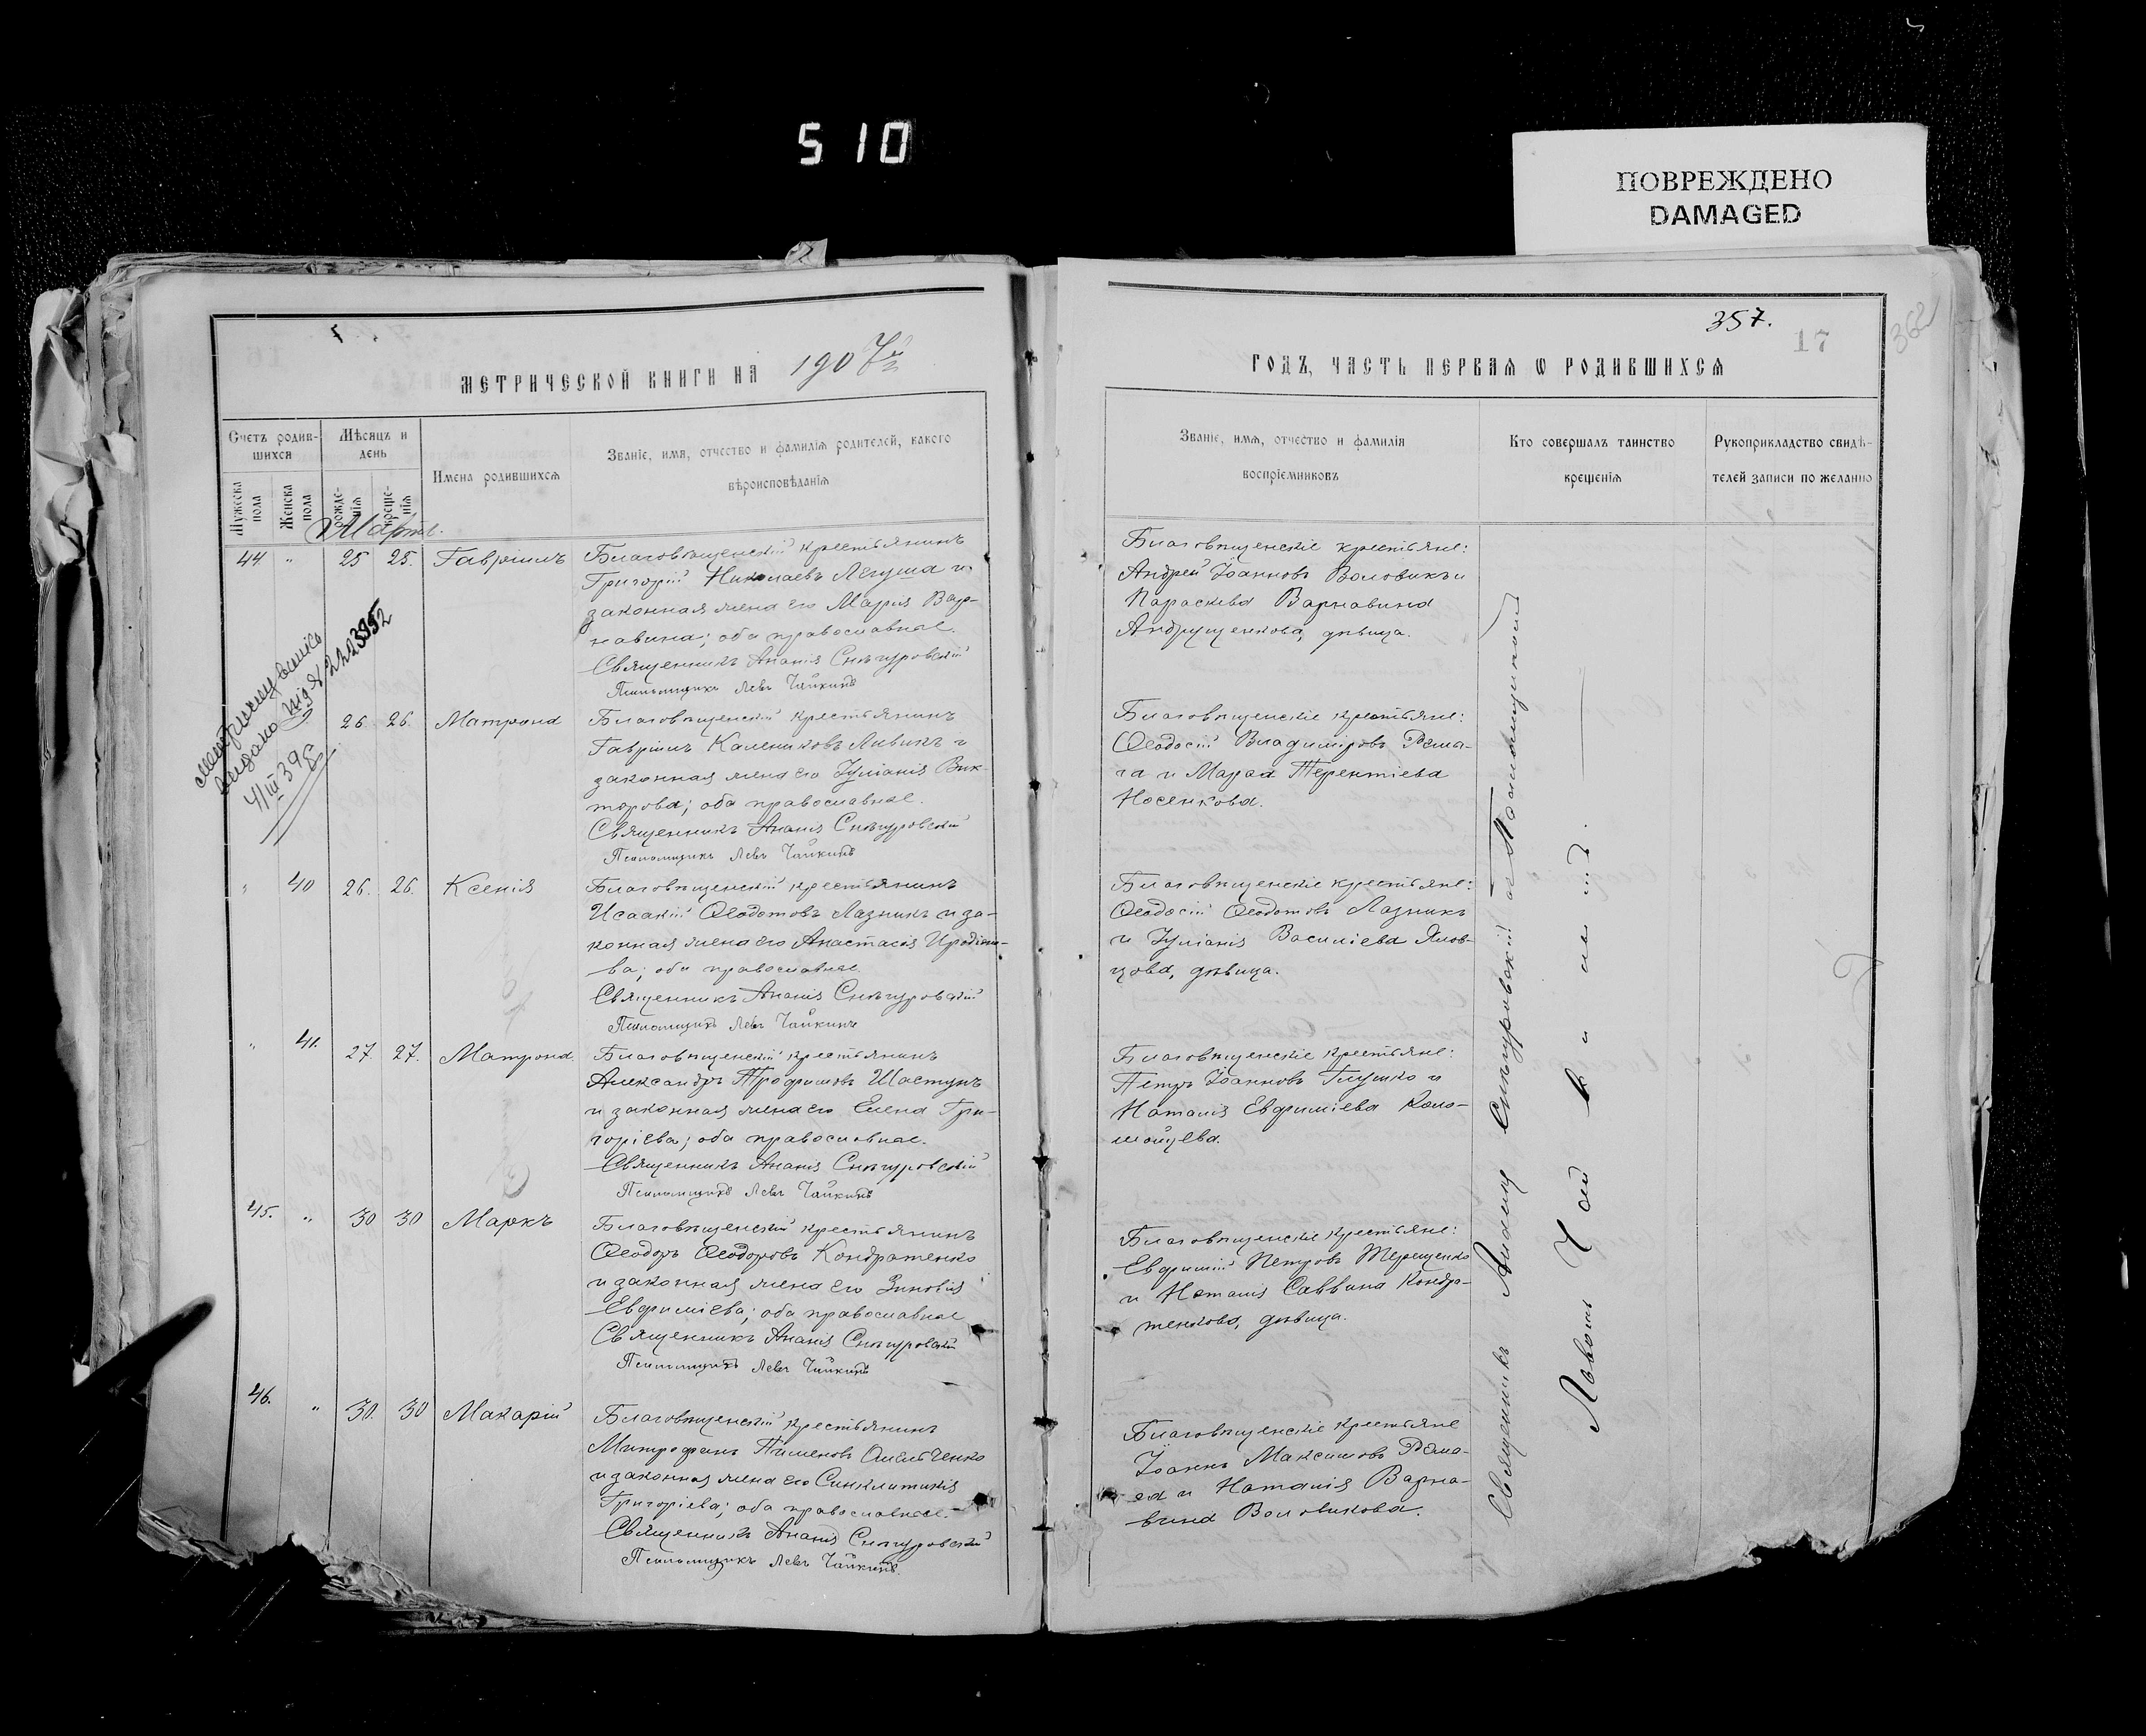 510
ПОВРЕЖДЕНО
DAMAGED
МЕТРИЧЕСКОЙ КНИГИ НА 1907й
Счетъ родив-
шихся
Мѣсяцъ и
день
Имена родившихся
Званіе, имя, отчество и фамилія родителей, какого
вѣроисповѣданія
Мужеска
пола
Женска
пола
рожде-
нія
креще-
нія
Мартъ.
44. " 25 25. Гавріилъ
Благовѣщенскій крестьянинъ
Григорій Николаевъ Легуша и
законная жена его Марія Вар-
навина; оба православные.
Священникъ Ананія Снѣгуровскій
Псаломщикъ Левъ Чайкинъ
выдано
4/III 39
26. 26. Матрона
Благовѣщенскій крестьянинъ
Гавріилъ Калениковъ Ливикъ и
законная жена его Іуліанія Вик-
торова; оба православные.
Священникъ Ананія Снѣгуровскій
Псаломщикъ Левъ Чайкинъ
" 40 26. 26. Ксенія
Благовѣщенскій крестьянинъ
Исаакій Ѳеодотовъ Лазникъ и за-
конная жена его Анастасія Иродіоно-
ва; оба православные.
Священникъ Ананія Снѣгуровскій
Псаломщикъ Левъ Чайкинъ
" 41. 27. 27. Матрона
Благовѣщенскій крестьянинъ
Александръ Трофимовъ Шастунъ
и законная жена его Елена Гри-
горіева; оба православные.
Священникъ Ананія Снѣгуровскій
Псаломщикъ Левъ Чайкинъ
45. " 30 30 Маркъ
Благовѣщенскій крестьянинъ
Ѳеодоръ Ѳеодоровъ Кондратенко
и законная жена его Зиновія
Евфиміева; оба православные
Священникъ Ананія Снѣгуровскій
Псаломщикъ Левъ Чайкинъ
46. " 30. 30 Макарій
Благовѣщенскій крестьянинъ
Митрофанъ Пименовъ Омельченко
и законная жена его Синклитикія
Григоріева; оба православные.
Священникъ Ананія Снѣгуровскій
Псаломщикъ Левъ Чайкинъ.
357.
17
362
ГОДЪ, ЧАСТЬ ПЕРВАЯ Ѡ РОДИВШИХСЯ
Званіе, имя, отчество и фамилія
воспріемниковъ
Кто совершалъ таинство
крещенія
Рукоприкладство свидѣ-
телей записи по желанію
Благовѣщенскіе крестьяне:
Андрей Іоанновъ Воловикъ и
Параскева Варнавина
Андрущенкова, дѣвица.
Благовѣщенскіе крестьяне:
Ѳеодосій Владиміровъ Рема-
га и Марѳа Терентіева
Носенкова.
Благовѣщенскіе крестьяне:
Ѳеодосій Ѳеодотовъ Лазникъ
и Іуліанія Василіева Яков-
цова, дѣвица.
Благовѣщенскіе крестьяне:
Петръ Іоанновъ Глушко и
Наталія Евфиміева Коло-
мойцева.
Благовѣщенскіе крестьяне:
Евфимій Петровъ Терещенко
и Наталія Саввина Кондра-
тенкова, дѣвица.
Благовѣщенскіе крестьяне
Іоаннъ Максимовъ Рема-
га и Наталія Варна-
вина Воловикова.
Священникъ Ананія Снѣгуровскій съ Псаломщикомъ
Львомъ Чайкинымъ.